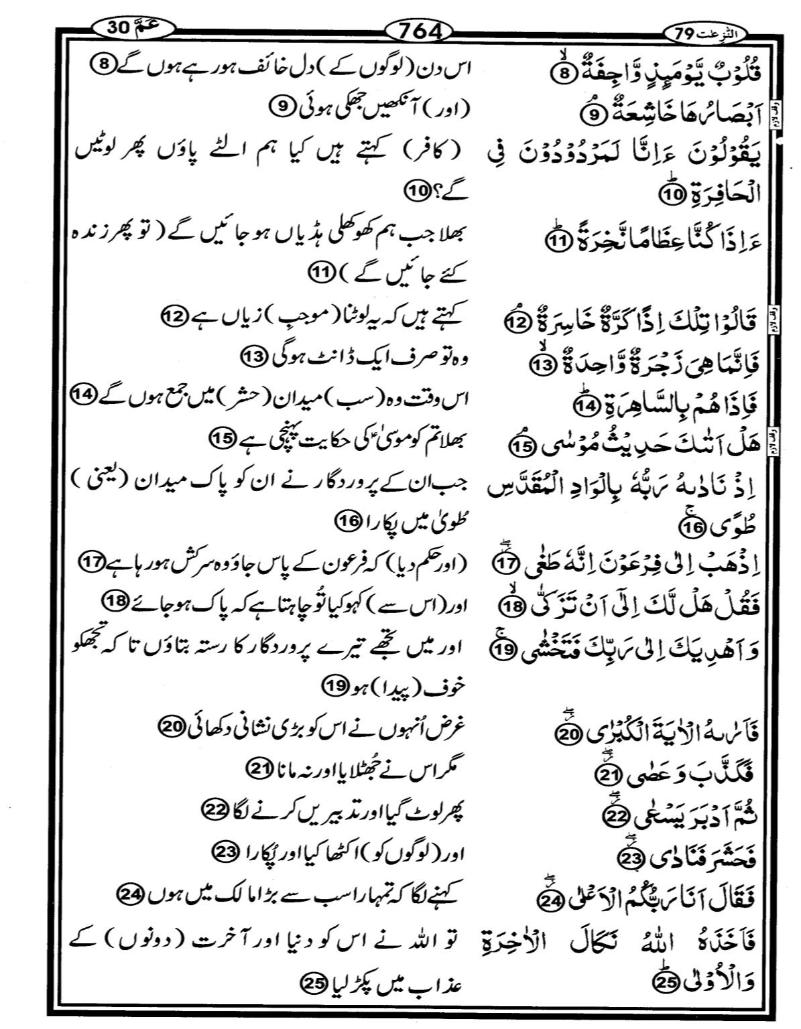 النّٰزِعٰت 79
764
عَمَّ 30
قُلُوۡبٌ يَّوۡمَٮِٕذٍ وَّاجِفَةٌ ۙ‏ 8
اس دن (لوگوں کے) دل خائف ہو رہے ہوں گے 8
اَبۡصَارُهَا خَاشِعَةٌ ۘ‏ 9
(اور) آنکھیں جھکی ہوئی 9
وقف لازم
يَقُوۡلُوۡنَ ءَاِنَّا لَمَرۡدُوۡدُوۡنَ فِى
الۡحَافِرَةِ ؕ‏ 10
(کافر) کہتے ہیں کیا ہم الٹے پاؤں پھر لوٹیں
گے؟ 10
ءَاِذَا كُنَّا عِظَامًا نَّخِرَةً ؕ‏ 11
بھلا جب ہم کھوکھلی ہڈیاں ہو جائیں گے (تو پھر زندہ
کئے جائیں گے) 11
قَالُوۡا تِلۡكَ اِذًا كَرَّةٌ خَاسِرَةٌ ۘ‏ 12
کہتے ہیں کہ یہ لوٹنا (موجبِ) زیاں ہے 12
وقف لازم
فَاِنَّمَا هِىَ زَجۡرَةٌ وَّاحِدَةٌ ۙ‏ 13
وہ تو صرف ایک ڈانٹ ہوگی 13
فَاِذَا هُمۡ بِالسَّاهِرَةِ ؕ‏ 14
اس وقت وہ (سب) میدان (حشر) میں جمع ہوں گے 14
هَلۡ اَتٰٮكَ حَدِيۡثُ مُوۡسٰى ۘ‏ 15
بھلا تم کو موسیٰؑ کی حکایت پہنچی ہے 15
وقف لازم
اِذۡ نَادٰٮهُ رَبُّهٗ بِالۡوَادِ الۡمُقَدَّسِ
طُوًى‌ۚ‏ 16
جب ان کے پروردگار نے ان کو پاک میدان (یعنی)
طُویٰ میں پکارا 16
اِذۡهَبۡ اِلٰى فِرۡعَوۡنَ اِنَّهٗ طَغٰى ۖ‏ 17
(اور حکم دیا) کہ فرعون کے پاس جاؤ وہ سرکش ہو رہا ہے 17
فَقُلۡ هَلۡ لَّكَ اِلٰٓى اَنۡ تَزَكّٰى ۙ‏ 18
اور (اس سے) کہو کیا تُو چاہتا ہے کہ پاک ہو جائے 18
وَاَهۡدِيَكَ اِلٰى رَبِّكَ فَتَخۡشٰى‌ۚ‏ 19
اور میں تجھے تیرے پروردگار کا رستہ بتاؤں تا کہ تجھکو
خوف (پیدا) ہو 19
فَاَرٰٮهُ الۡاٰيَةَ الۡكُبۡرٰى ۖ‏ 20
غرض اُنہوں نے اس کو بڑی نشانی دکھائی 20
فَكَذَّبَ وَعَصٰى ۖ‏ 21
مگر اس نے جُھٹلایا اور نہ مانا 21
ثُمَّ اَدۡبَرَ يَسۡعٰى ۖ‏ 22
پھر لوٹ گیا اور تدبیریں کرنے لگا 22
فَحَشَرَ فَنَادٰى ۖ‏ 23
اور (لوگوں کو) اکٹھا کیا اور پُکارا 23
فَقَالَ اَنَا رَبُّكُمُ الۡاَعۡلٰى ۖ‏ 24
کہنے لگا کہ تمہارا سب سے بڑا مالک میں ہوں 24
فَاَخَذَهُ اللّٰهُ نَكَالَ الۡاٰخِرَةِ
وَالۡاُوۡلٰى ؕ‏ 25
تو اللہ نے اس کو دنیا اور آخرت (دونوں) کے
عذاب میں پکڑ لیا 25